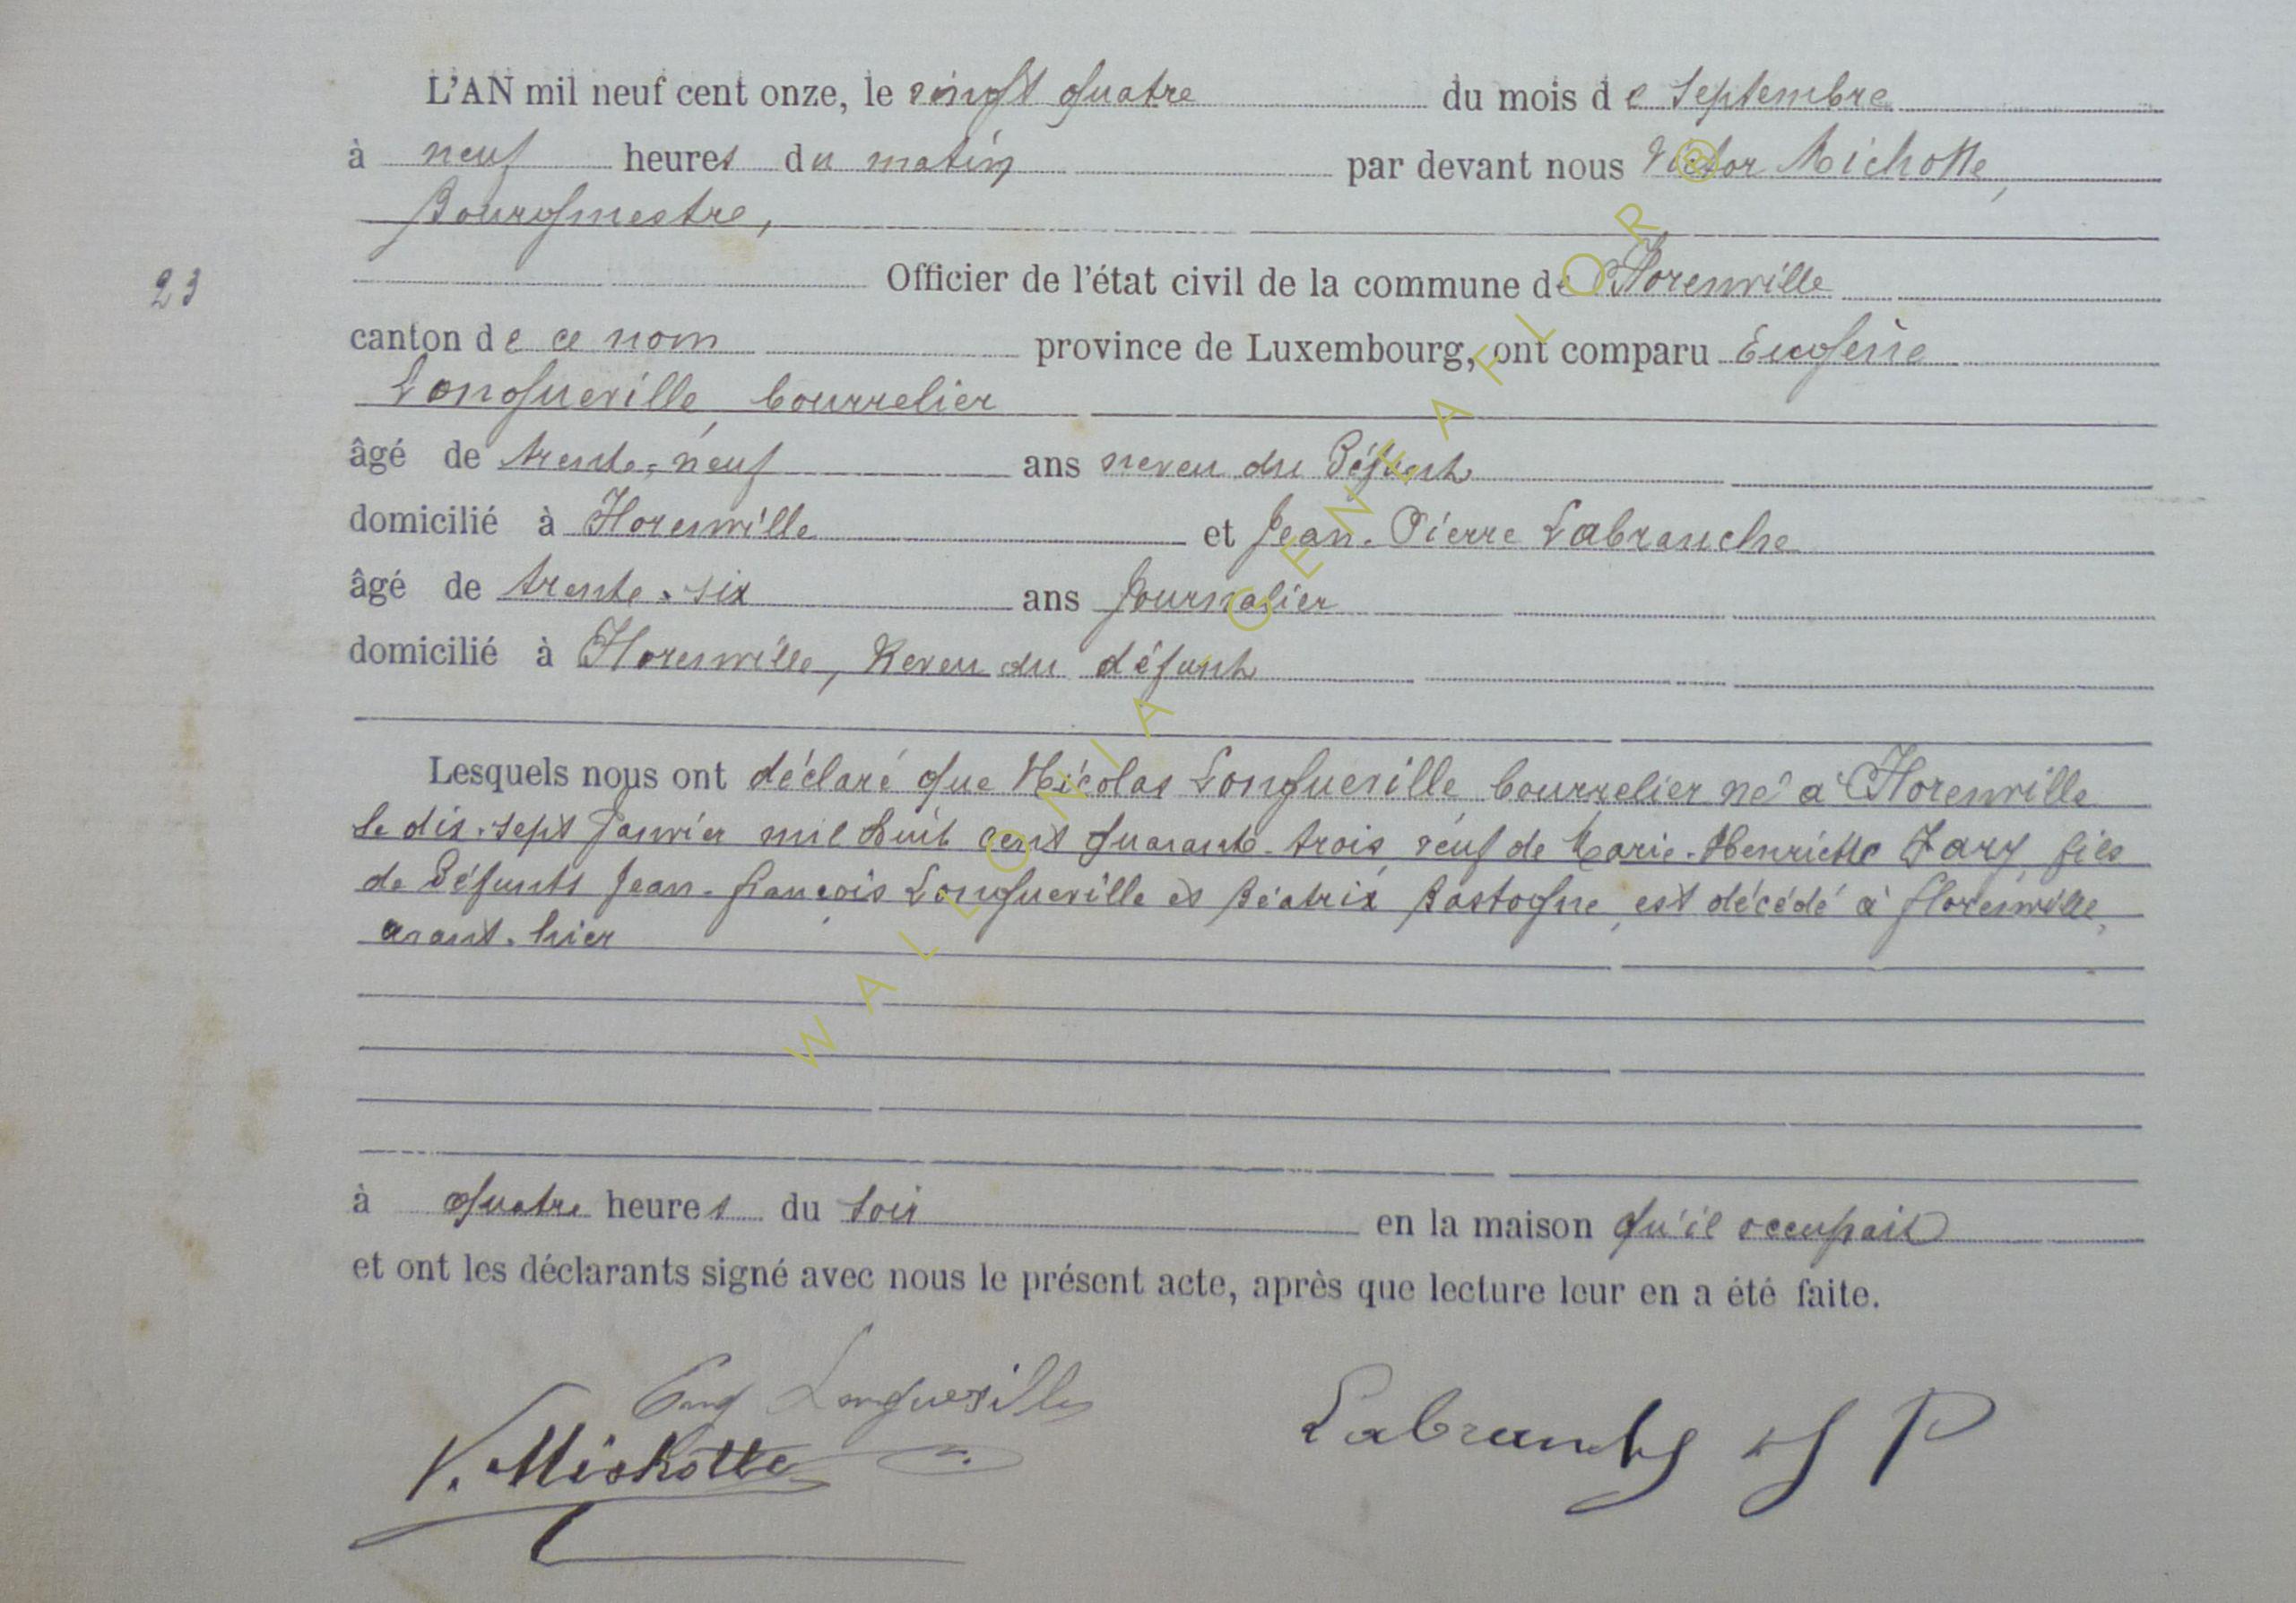 L'AN mil neuf cent onze, le vingt quatre du mois de Septembre
à neuf heures du matin par devant nous Victor Michotte,
Bourgmestre,
23 Officier de l'état civil de la commune de Florenville
canton de ce nom province de Luxembourg, ont comparu Eugène
Longueville, bourrelier
âgé de trente-neuf ans neveu du Défunt
domicilié à Florenville et Jean-Pierre Labranche
âgé de trente-six ans Journalier
domicilié à Florenville, Neveu du défunt
Lesquels nous ont déclaré que Nicolas Longueville, bourrelier né à Florenville
le dix-sept Janvier mil huit cent quarante-trois, veuf de Marie-Henriette Jary, fils
de Défunts Jean-François Longueville et Béatrix Bastogne, est décédé à Florenville,
avant-hier
à quatre heures du soir en la maison qu'il occupait
et ont les déclarants signé avec nous le présent acte, après que lecture leur en a été faite.
Eug Longueville
V. Michotte Labranche J P
WALLONIA GENEAFLOR ®